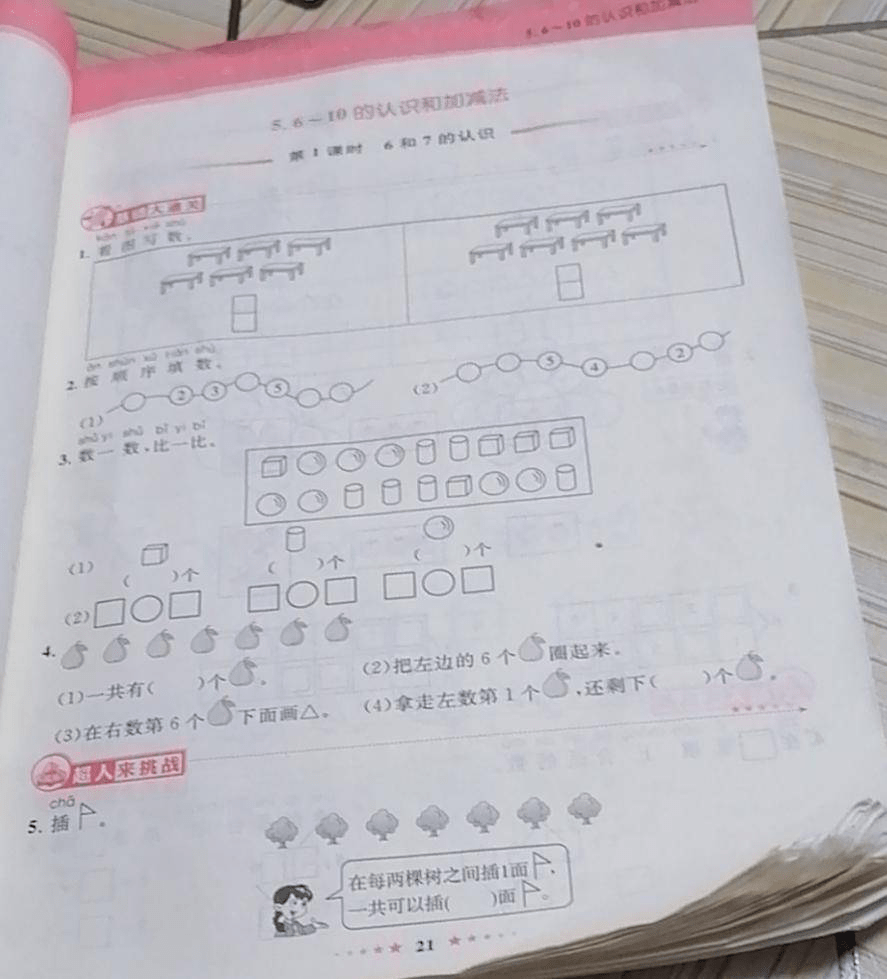 5. 6~10的认识和加减法
5. 6~10 的认识和加减法
第 1 课时 6 和 7 的认识
基础大通关
1. 看图写数。
àn shùn xù tián shù
2. 按顺序填数。
(1) 2 3 5
(2) 5 4 2
shǔ yi shǔ bǐ yi bǐ
3. 数一数,比一比。
(1) ( )个 ( )个 ( )个
(2)
4.
(1)一共有( )个。 (2)把左边的 6 个圈起来。
(3)在右数第 6 个下面画△。 (4)拿走左数第 1 个,还剩下( )个。
超人来挑战
chā
5. 插。
在每两棵树之间插1面,
一共可以插( )面。
21